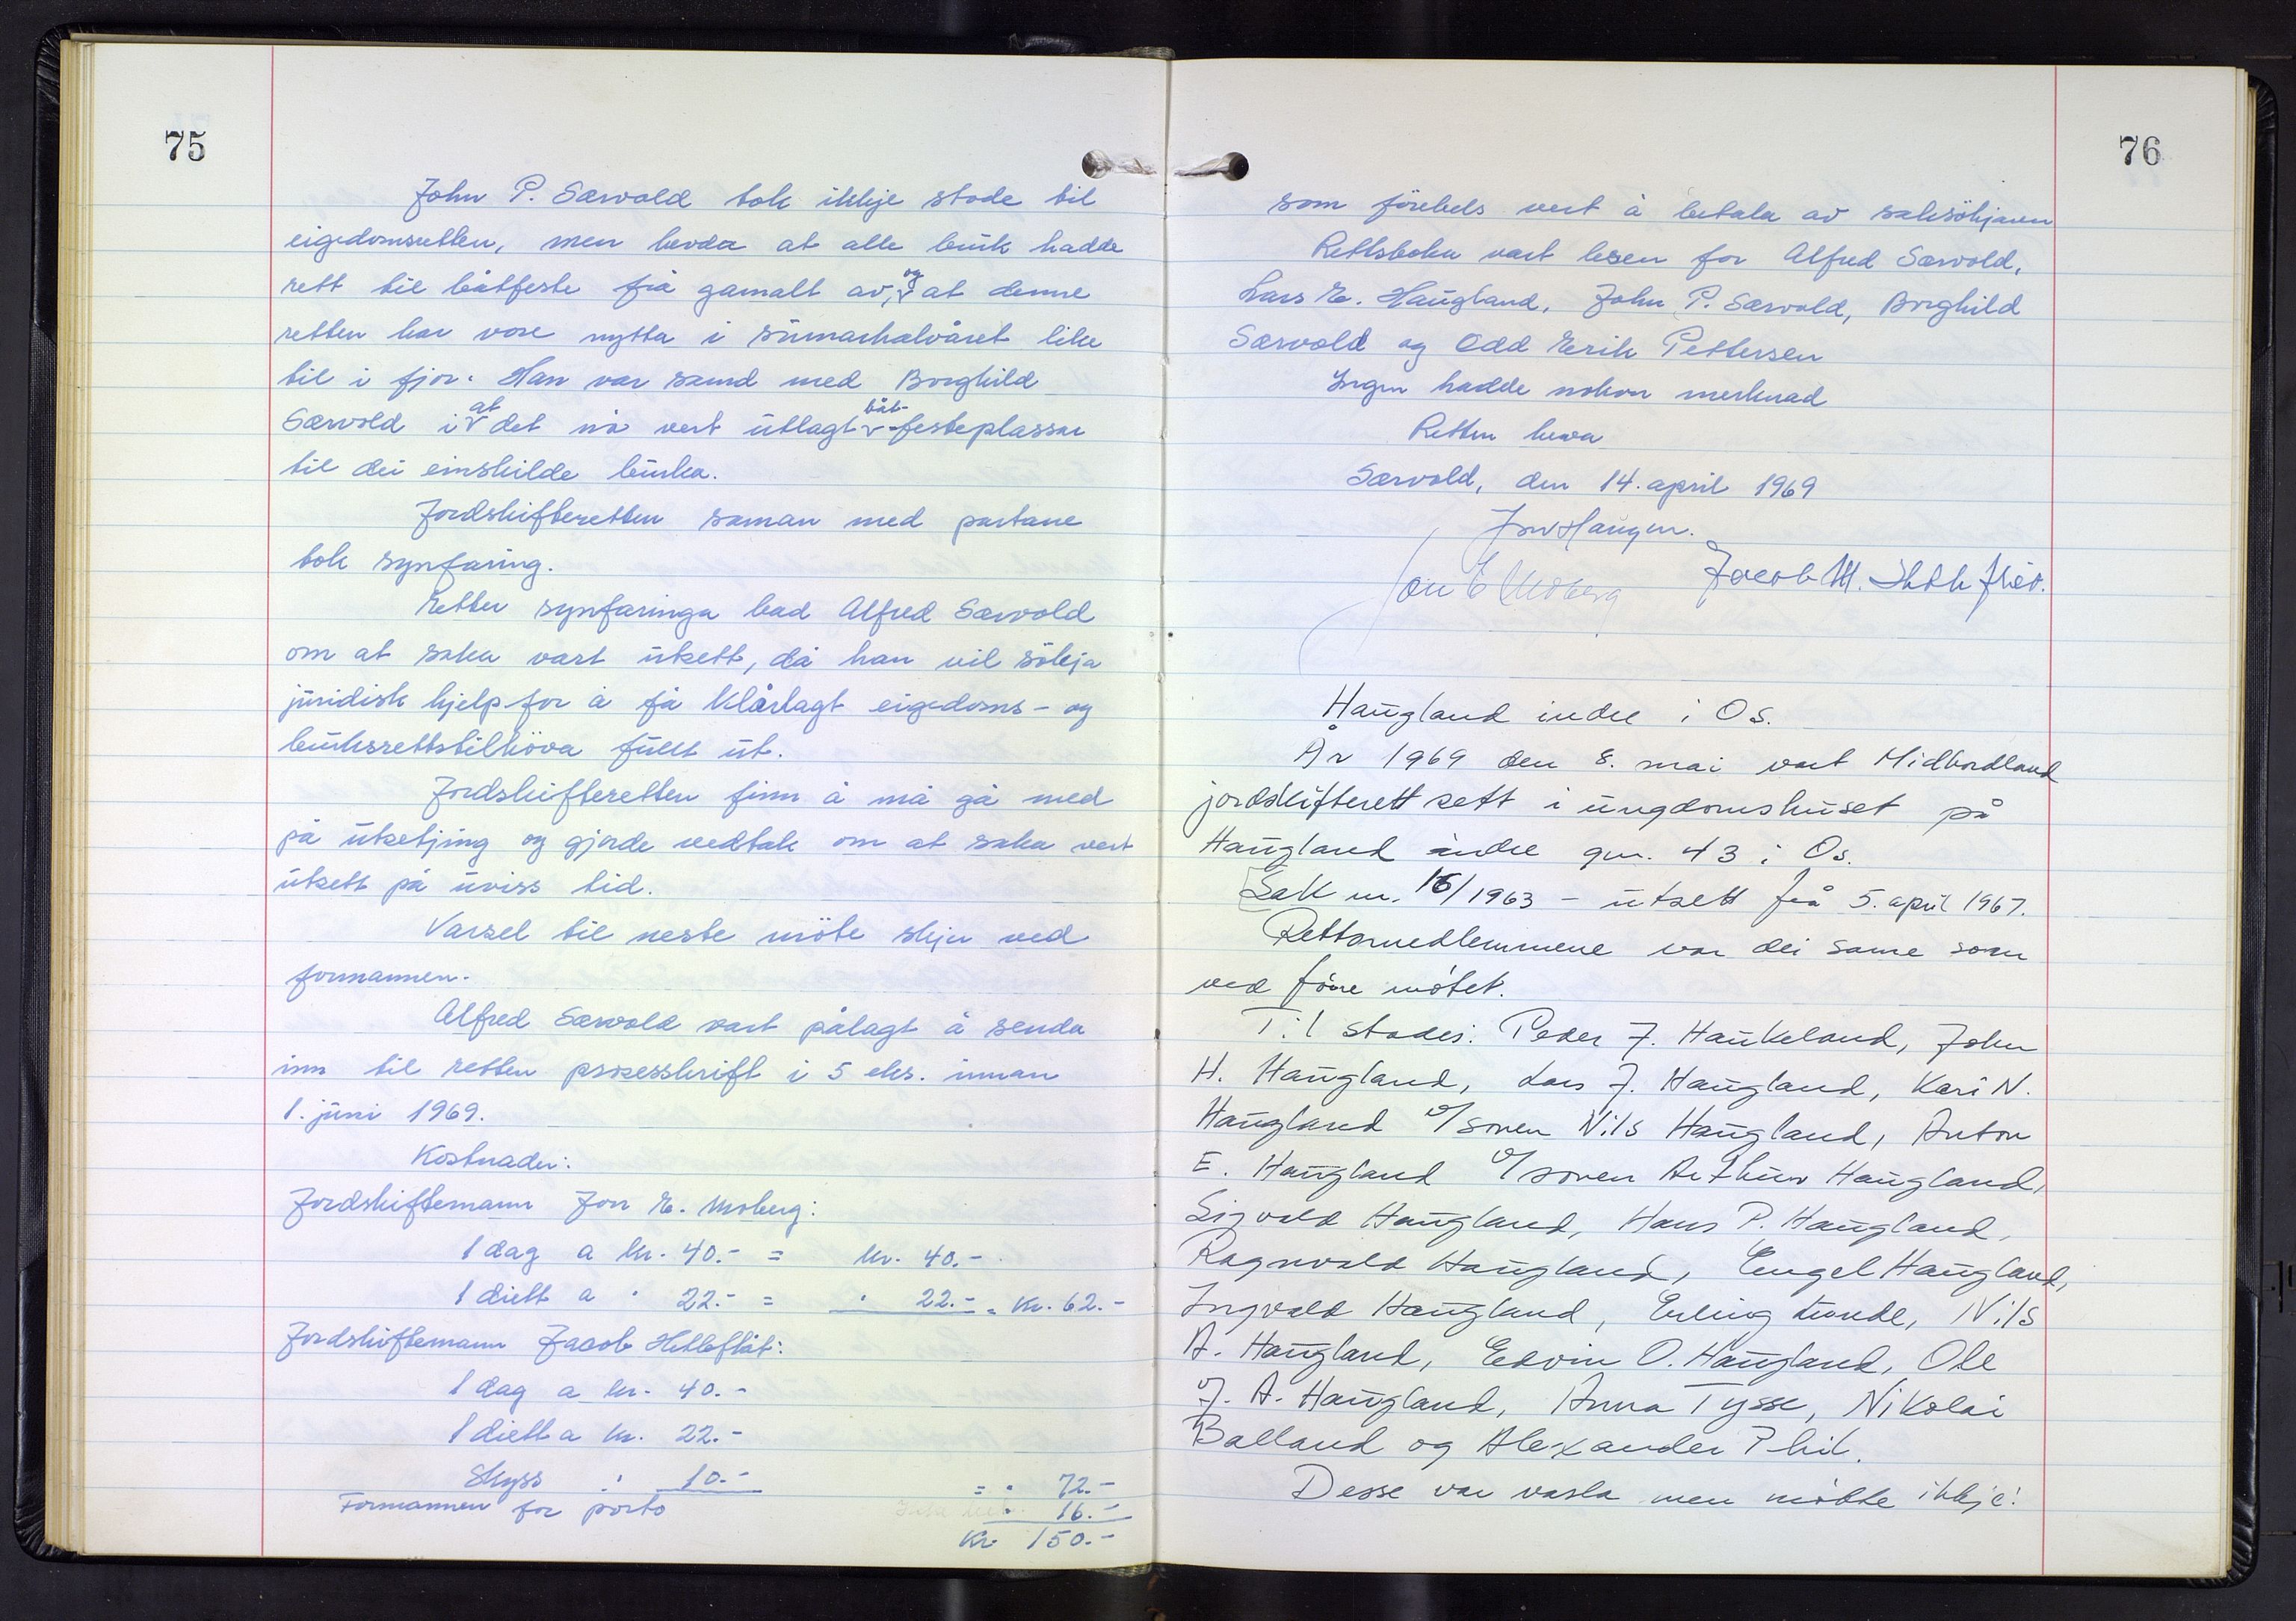 75
John P. Særvold tok ikkje stode til
eigedomsretten, men hevda at alle bruk hadde
rett til båtfeste frå gamalt av, og at denne
retten har vore nytta i sumarhalvåret like
til i fjor. Han var samd med Borghild
Særvold i at det nå vert utlagt båt-festeplassar
til dei einskilde bruka.
Jordskifteretten saman med partane
tok synfaring.
Etter synfaringa bad Alfred Særvold
om at saka vart utsett, då han vil søkja
juridisk hjelp for å få klårlagt eigedoms- og
bruksrettstilhöva fullt ut.
Jordskifteretten finn å må gå med
på utsetjing og gjorde vedtak om at saka vert
utsett på uviss tid.
Varsel til neste möte skjer ved
formannen.
Alfred Særvold vart pålagt å senda
inn til retten prosesskrift i 5 eks. innan
1. juni 1969.
Kostnader:
Jordskiftemann Jon E. Moberg:
1 dag a kr. 40.- = kr. 40.-
1 diett a " 22.- = " 22.- = Kr. 62.-
Jordskiftemann Jacob Hetleflåt:
1 dag a kr. 40.-
1 diett a kr. 22.-
Skyss : 10.- = " 72.-
Formannen for porto " 16.-
Kr. 150.-
76
som förebels vert å betala av saksökjaren
Rettsboka vart lesen for Alfred Særvold,
Lars E. Haugland, John P. Særvold, Borghild
Særvold og Odd Erik Pettersen
Ingen hadde nokon merknad
Retten heva
Særvold, den 14. april 1969
Jon E Moberg Jacob M.
Haugland indre i Os.
År 1969 den 8. mai vart Midhordland
jordskifterett sett i ungdomshuset på
Haugland indre gnr. 43 i Os.
Sak nr. 16/1963 - utsett frå 5. april 1967.
Rettsmedlemmene var dei same som
ved förre mötet.
Til stades: Peder J. Haukeland, John
H. Haugland, Lars J. Haugland, Kari N.
Haugland v/sonen Nils Haugland, Anton
E. Haugland v/sonen Arthur Haugland,
Sigvald Haugland, Hans P. Haugland,
Ragnvald Haugland, Engel Haugland,
Ingvald Haugland, Erling Lionde, Nils
A. Haugland, Edvin O. Haugland, Ole
J. A. Haugland, Anna Tysse, Nikolai
Balland og Alexander Phil.
Desse var varsla men mötte ikkje: